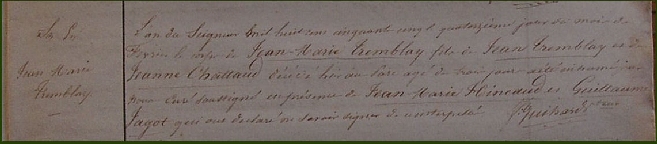 Sn Pr
Jean Marie
Tremblay
L'an du Seigneur mil huit cent cinquante cinq le quatorzième jour du mois de
Février le corps de Jean-Marie Tremblay fils de Jean Tremblay et de
Jeanne Chattaud décédé hier au âgé de trois jours a été inhumé
nous curé soussigné en présence de Jean-Marie Hineaud et Guillaume
Jagot qui ont déclaré ne savoir signer de ce interpellés Guihard